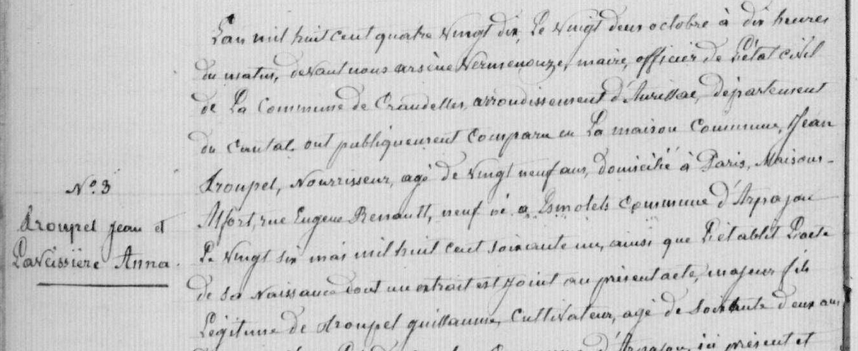 L'an mil huit cent quatre vingt dix, Le vingt deux octobre à dix heures
du matin, devant nous arsène Vermenouze, maire, officier de l'état civil
de La Commune de Crandelles, arrondissement d'Aurillac, département
du cantal, ont publiquement comparu en La maison commune, Jean
N° 3
Aroupel, Nourrisseur, agé de vingt neuf ans, domicilié à Paris, Maisons-
Aroupel Jean et
Alfort, rue Eugene Renault, neuf né a commune d'Arpajon
Laveissière Anna.
Le vingt six mai mil huit cent soixante un, ainsi que l'établit l'acte
de sa Naissance dont un extrait est joint au présent acte, majeur fils
Légitime de Aroupel guillaume, cultivateur, agé de soixante deux ans
d'Arpajon, ici présent et